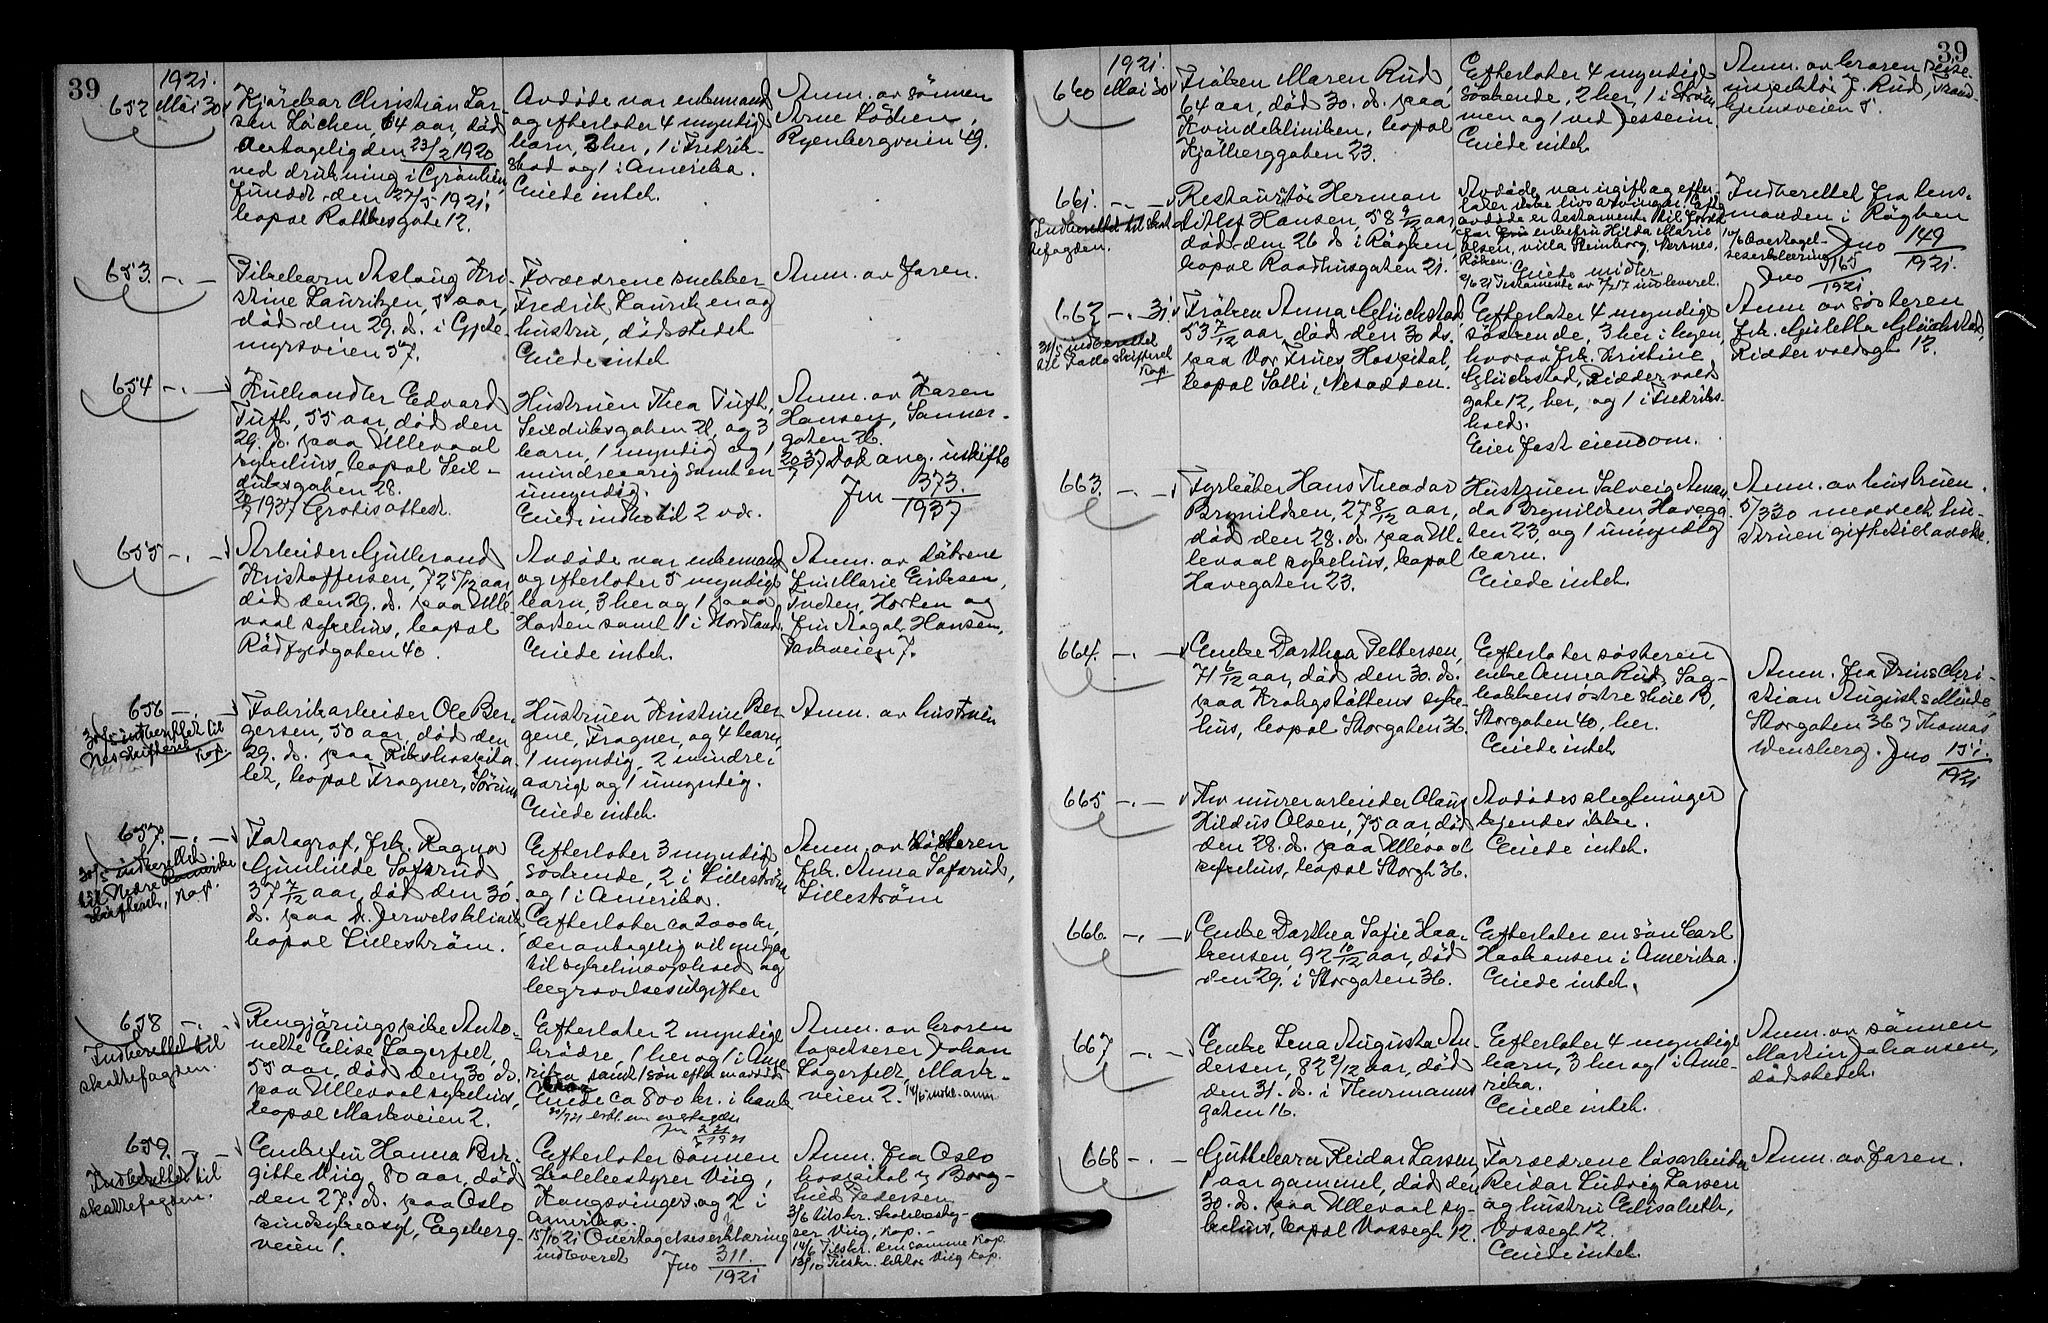 39
1921.
652 Mai 30
Kjørekar Christian Lar-
sen Løchen, 64 aar, død
antagelig den 23/2 1920
ved drukning i
fundet den 27/5 1921.
bopæl Rathkesgate 12.
Avdøde var enkemand
og efterlater 4 myndige
barn, 2 her, 1 i Fredrik-
stad og 1 i Amerika.
Eiede intet.
Anm. av sønnen
Arne Løchen,
Ryenbergveien 49.
653. -"-
Pikebarn Aslaug Kri-
stine Lauritzen, 5 aar,
død den 29. ds. i Gjete-
myrsveien 57.
Forældrene snekker
Fredrik Lauritzen og
hustru, dødsstedet
Eiede intet
Anm. av faren.
654 -"-
Kulhandler Edvard
Tuft, 55 aar, død den
29. ds. paa Ullevaal
sykehus, bopæl Seil-
duksgaten 28.
20/7 1937 Gratisattest.
Hustruen Thea Tuft,
Seilduksgaten 28, og 3
barn, 1 myndig og 1
mindreaarig samt en
umyndig.
Eiede indbo til 2 vær.
Anm. av Karen
Hansen, Sanner-
gaten 26.
20/7 37 Dok ang. uskifte
Jno 373/1937
655 -"-
Arbeider Gulbrand
Kristoffersen, 72 5/12 aar,
død den 29. ds. paa Ulle-
vaal sykehus, bopæl
Rødfyldgaten 40.
Avdøde var enkemand
og efterlater 5 myndige
barn, 3 her og 1 paa
Horten samt 1 i Nordland.
Eiede intet.
Anm. av døtrene
fru Marie Eriksen,
Horten og
fru Aagot Hansen,
Parkveien 7.
656 -"-
30/5 indberettet til
Nes skifteret
Kop.
Fabrikarbeider Ole Ber-
gersen, 50 aar, død den
29. ds. paa Rikshospita-
let, bopæl Fragner, Sørum
Hustruen Kristine Ber-
gene, Fragner, og 4 barn,
1 myndig, 2 mindre-
aarige og 1 umyndig.
Eiede intet.
Anm. av hustruen
657. -"-
30/5 indberettet
til Nedre Romerike
skifteret, Kop.
Fotograf, frk. Ragna
Gunhilde Sofsrud,
37 7/12 aar, død den 30.
ds. paa dr. Jervels klinik
bopæl Lillestrøm.
Efterlater 3 myndige
søskende, 2 i Lillestrøm
og 1 i Amerika.
Efterlater ca 2000 kr,
der antagelig vil medgaa
til sykehusophold og
begravelsesutgifter
Anm. av søsteren
frk. Anna Sofsrud,
Lillestrøm
658 -"-
Indberettet til
skattefogden.
Rengjøringspike Anto-
nette Elise Lagerfelt,
55 aar, død den 30. ds.
paa Ullevaal sykehus,
bopæl Markveien 2.
Efterlater 2 myndige
brødre, 1 her og 1 i Ame-
rika samt 1 søn efter en avdød
Eiede ca 800 kr. i bank
erkl. om overtagelse
Jno
Anm. av broren
tapetserer Johan
Lagerfelt, Mark-
veien 2.
659. -"-
Indberettet til
skattefogden.
Enkefru Hanna Bir-
gitte Viig, 80 aar, død
den 27. ds. paa Oslo
sindsykeasyl, Ekeberg-
veien 1.
Efterlater sønnen
skolebestyrer Viig,
Kongsvinger og 2 i
Amerika.
15/10 21 Overtagelseserklæring
indleveret
Jno 311/1921
Anm. fra Oslo
hospital v Borg-
hild Pedersen
3/6 tilskr. skolebesty-
rer Viig, Kop.-
14/6 Tilskr. densamme Kop.
13/10 Tilskr. lektor Viig Kop.
39
1921.
660 Mai 30
Frøken Maren Rud,
64 aar, død 30. ds. paa
Kvindeklinikken, bopæl
Kjølberggaten 23.
Efterlater 4 myndige
søskende, 2 her, 1 i Strøm-
men og 1 ved Jessheim.
Eiede intet
Anm. av broren reise-
inspektør J. Rud, Trond-
hjemsveien 5.
661. -"-
Indberettet til skat-
tefogden.
Restauratør Herman
Ditlef Hansen, 58 9/12 aar,
død den 26 ds i Røyken,
bopæl Raadhusgaten 21.
Avdøde var ugift og efter-
later ikke livsarvinger. Efter
avdøde er testamente til fordel
for enkefru Hilda Marie
Olsen, villa Steinborg, Nærsnes,
Røken.
Eiede midler
2/6 21 Testamente av 7/7 17 indleveret.
Indberettet fra lens-
manden i Røyken
Jno 149/1921.
14/6 Overtagel-
seserklæring
Jno 165/1921
662 -"- 31.
31/5 indberettet
til Follo skifteret
Kop.
Frøken Anna Glückstad,
53 7/12 aar, død den 30 ds.
paa Vor Frues Hospital,
bopæl Solli, Nesodden.
Efterlater 4 myndige
søskende, 3 her i byen
hvorav frk. Kristine
Glückstad, Riddervolds
gate 12, her, og 1 i Fredriks-
hald.
Eier fast eiendom.
Anm. av søsteren
frk. Juletta Glückstad,
Riddervoldsgt 12.
663. -"-
Fyrbøter Hans Theodor
Brynildsen, 27 8/12 aar,
død den 28. ds. paa Ul-
levaal sykehus, bopæl
Havegaten 23.
Hustruen Solveig Aman-
da Brynildsen Havega-
ten 23, og 1 umyndig
barn.
Eiede intet.
Anm. av hustruen.
5/3 30 meddelt hu-
struen giftetilladelse.
664. -"-
Enke Dorthea Pettersen,
71 6/12 aar, død den 30. ds.
paa Krohgstøttens syke-
hus, bopæl Storgaten 36.
Efterlater søsteren
enke Anna Rud, Sag-
bakkens østre stue B,
Storgaten 40, her.
Eiede intet
Anm. fra Prins Chri-
stian Augusts Minde,
Storgaten 36 v Thomas
Wensberg. Jno 151/1921
665 -"-
Fhv murerarbeider Claus
Hildus Olsen, 75 aar, død
den 28. ds. paa Ullevaal
sykehus, bopæl Storgt 36.
Avdødes slegtninger
kjendes ikke.
Eiede intet.
666. -"-
Enke Dorthea Sofie Haa-
kensen, 92 10/12 aar, død
den 29. i Storgaten 36.
Efterlater en søn Carl
Haakonsen i Amerika.
Eiede intet.
667 -"-
Enke Lena Augusta An-
dersen, 82 2/12 aar, død
den 31. ds. i Thurmanns
gaten 16.
Efterlater 4 myndige
barn, 3 her og 1 i Ame-
rika.
Eiede intet.
Anm. av sønnen
Martin Johansen,
dødsstedet.
668 -"-
Guttebarn Reidar Larsen,
1 aar gammel, død den
30. ds. paa Ullevaal sy-
kehus, bopæl Vossegt 12.
Forældrene løsarbeider
Reidar Ludvig Larsen
og hustru Elisabeth,
Vossegt 12.
Eiede intet.
Anm. av faren.